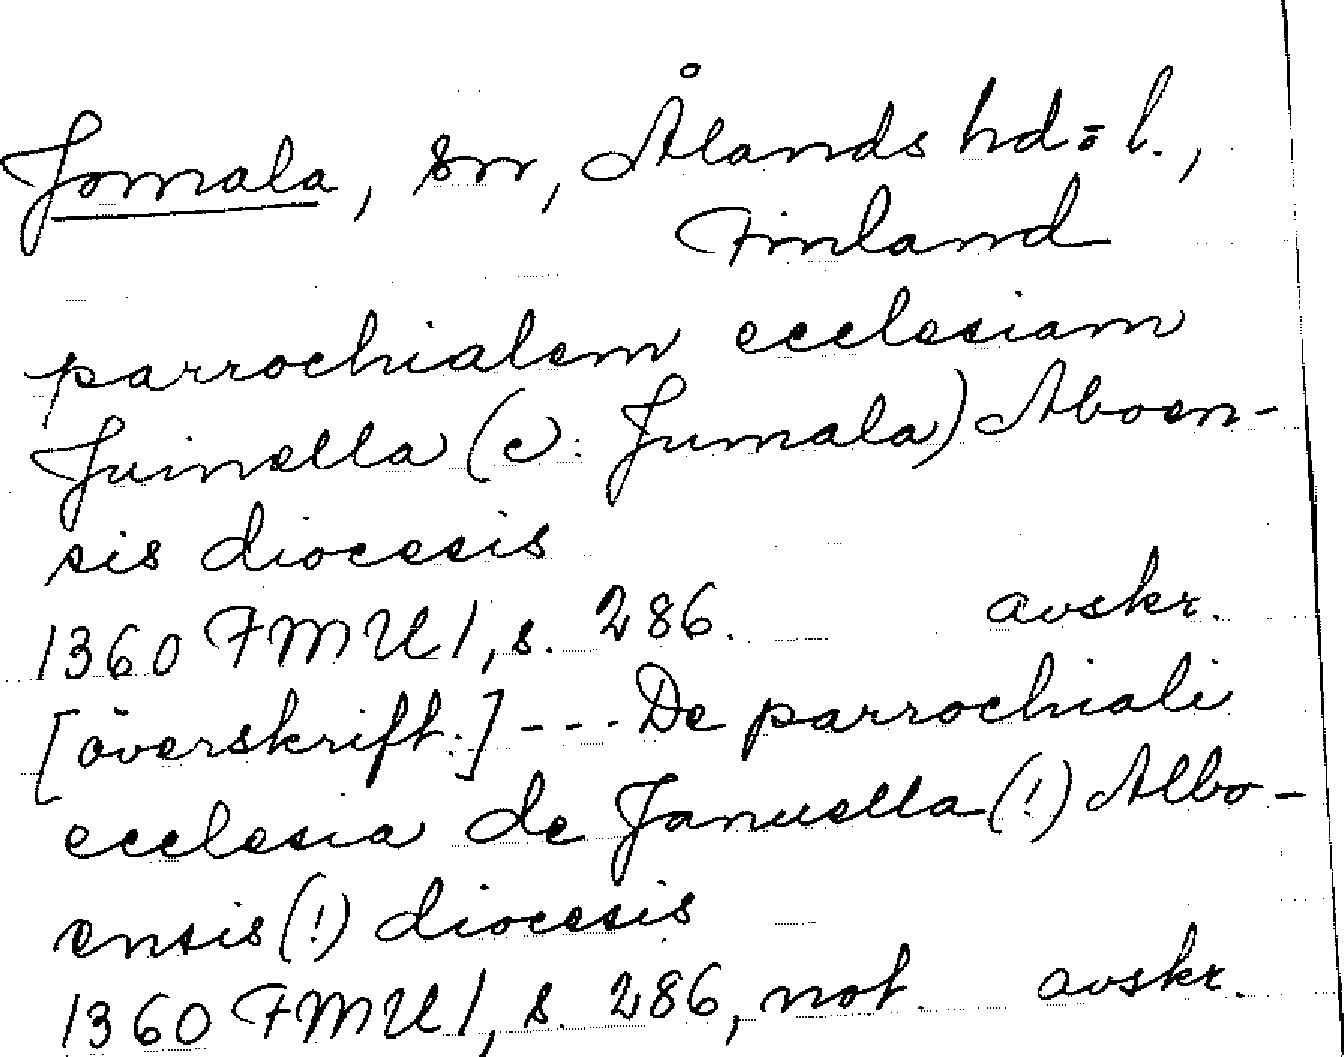 Jomala, sn, Ålands hd=l.,
Finland
parrochialem ecclesiam
Juinella (ɔ: Jumala) Aboen-
sis diocesis
1360 FMU 1, s. 286. avskr.
[överskrift:] --- De parrochiali
ecclesia de Januella (!) Albo-
ensis (!) diocesis
1360 FMU 1, s. 286, not. avskr.